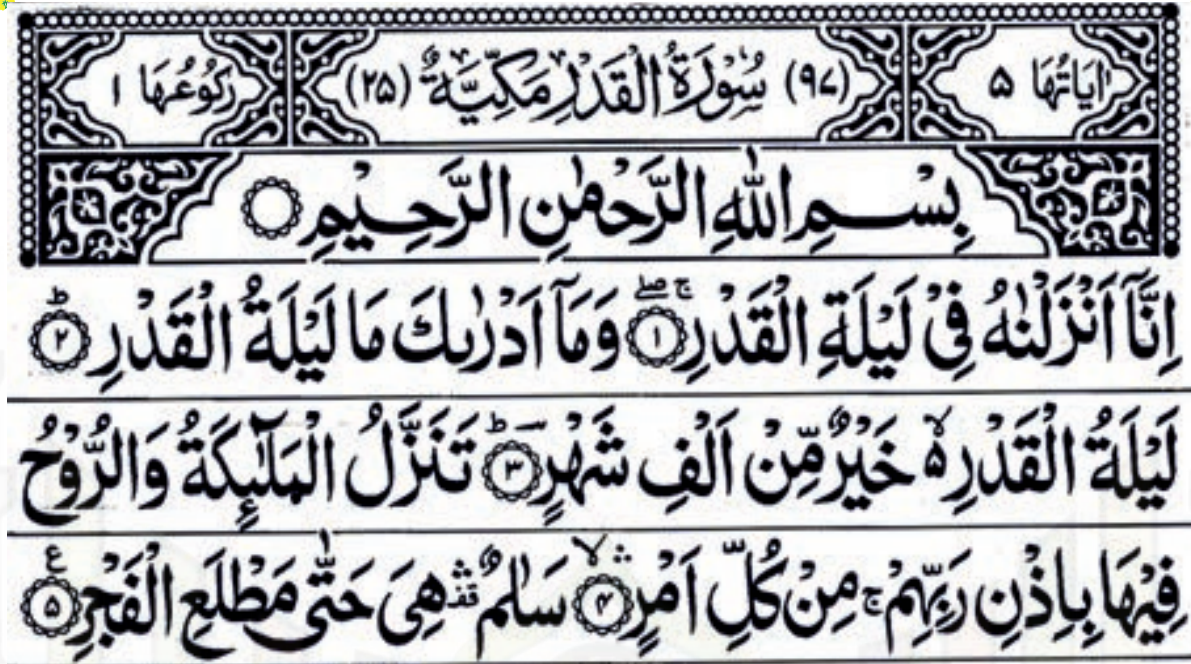 اٰيَاتُهَا ۵ (۹۷) سُوْرَةُ الْقَدْرِ مَكِّيَّةٌ (۲۵) رُكُوْعُهَا ۱
بِسْمِ اللّٰهِ الرَّحْمٰنِ الرَّحِيْمِ
اِنَّاۤ اَنْزَلْنٰهُ فِیْ لَيْلَةِ الْقَدْرِ ۚۖ ۱ وَمَاۤ اَدْرٰىكَ مَا لَيْلَةُ الْقَدْرِ ؕ ۲
لَيْلَةُ الْقَدْرِ ۙ۬ خَيْرٌ مِّنْ اَلْفِ شَهْرٍ ؕ ۳ تَنَزَّلُ الْمَلٰٓئِكَةُ وَالرُّوْحُ
فِيْهَا بِاِذْنِ رَبِّهِمْ ۚ مِنْ كُلِّ اَمْرٍ ۙۛ ۴ سَلٰمٌ ۛ هِیَ حَتّٰى مَطْلَعِ الْفَجْرِ ع ۵